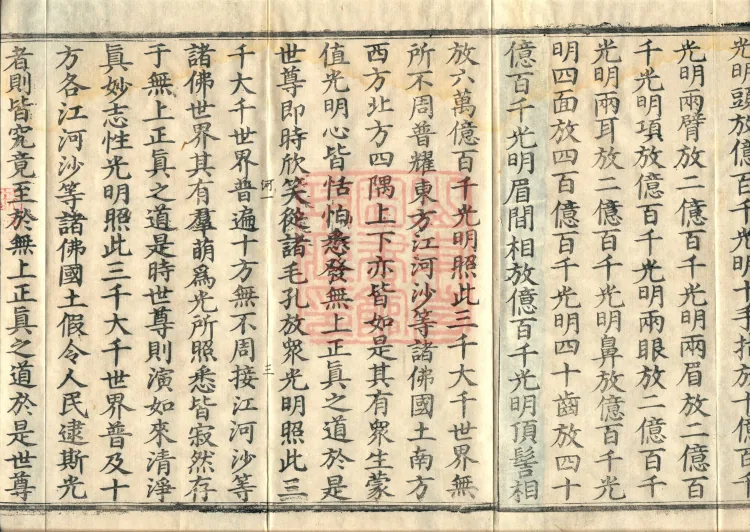 光明頭放億百千光明十手指放十億百千
光明兩臂放二億百千光明兩眉放二億百
千光明項放億百千光明兩眼放二億百千
光明兩耳放二億百千光明鼻放億百千光
明四面放四百億百千光明四十齒放四十
億百千光明眉間相放億百千光明頂髻相
放六萬億百千光明照此三千大千世界無
所不周普耀東方江河沙等諸佛國土南方
西方北方四隅上下亦皆如是其有衆生蒙
值光明心皆恬怕悉發無上正眞之道於是
世尊即時欣笑從諸毛孔放衆光明照此三
河一
三
千大千世界普遍十方無不周接江河沙等
諸佛世界其有羣萌爲光所照悉皆寂然存
于無上正眞之道是時世尊則演如來清淨
眞妙志性光明照此三千大千世界普及十
方各江河沙等諸佛國土假令人民逮斯光
者則皆究竟至於無上正眞之道於是世尊